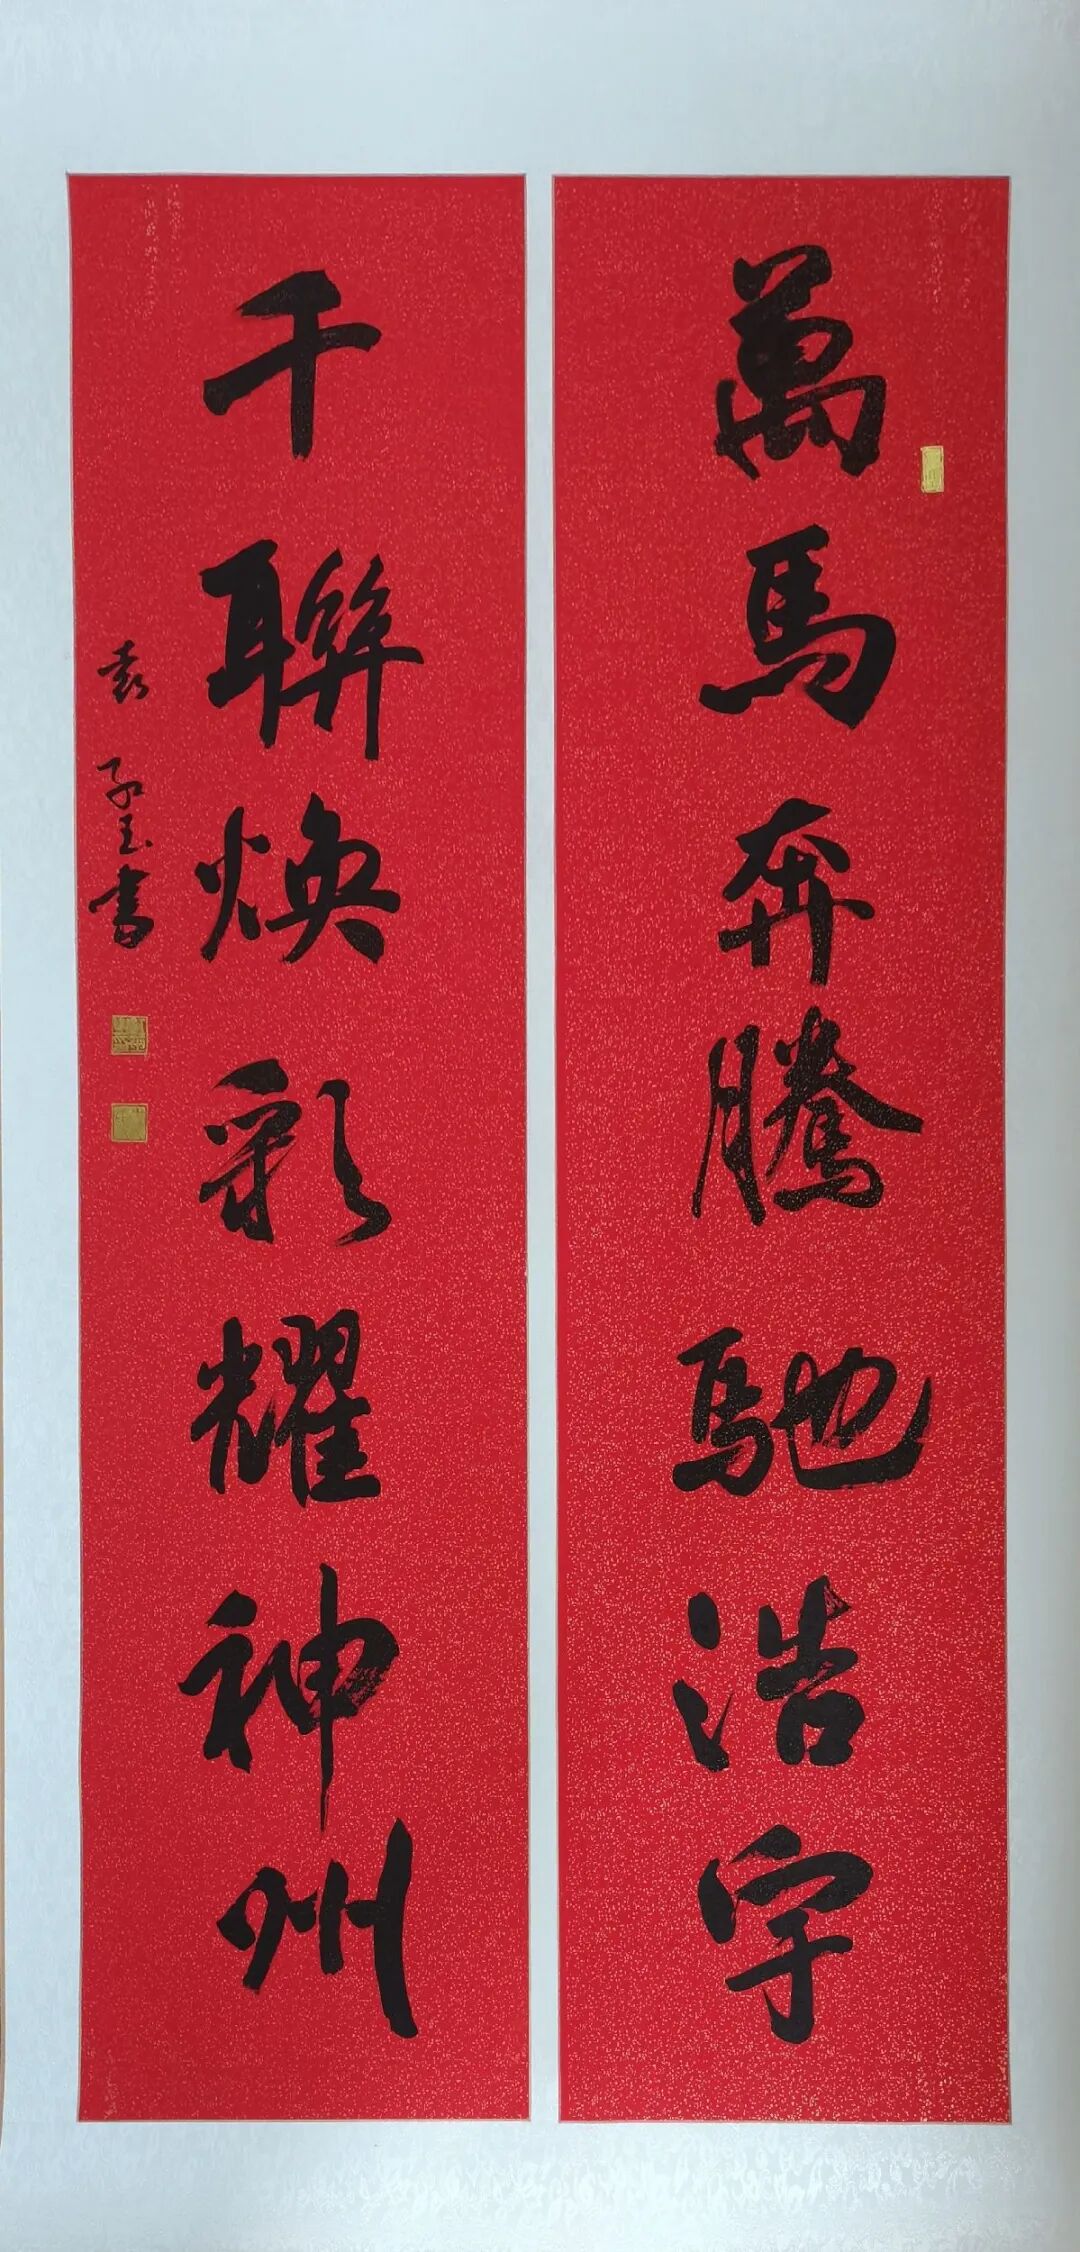 萬馬奔騰馳浩宇
千聯煥彩耀神州
袁子玉書